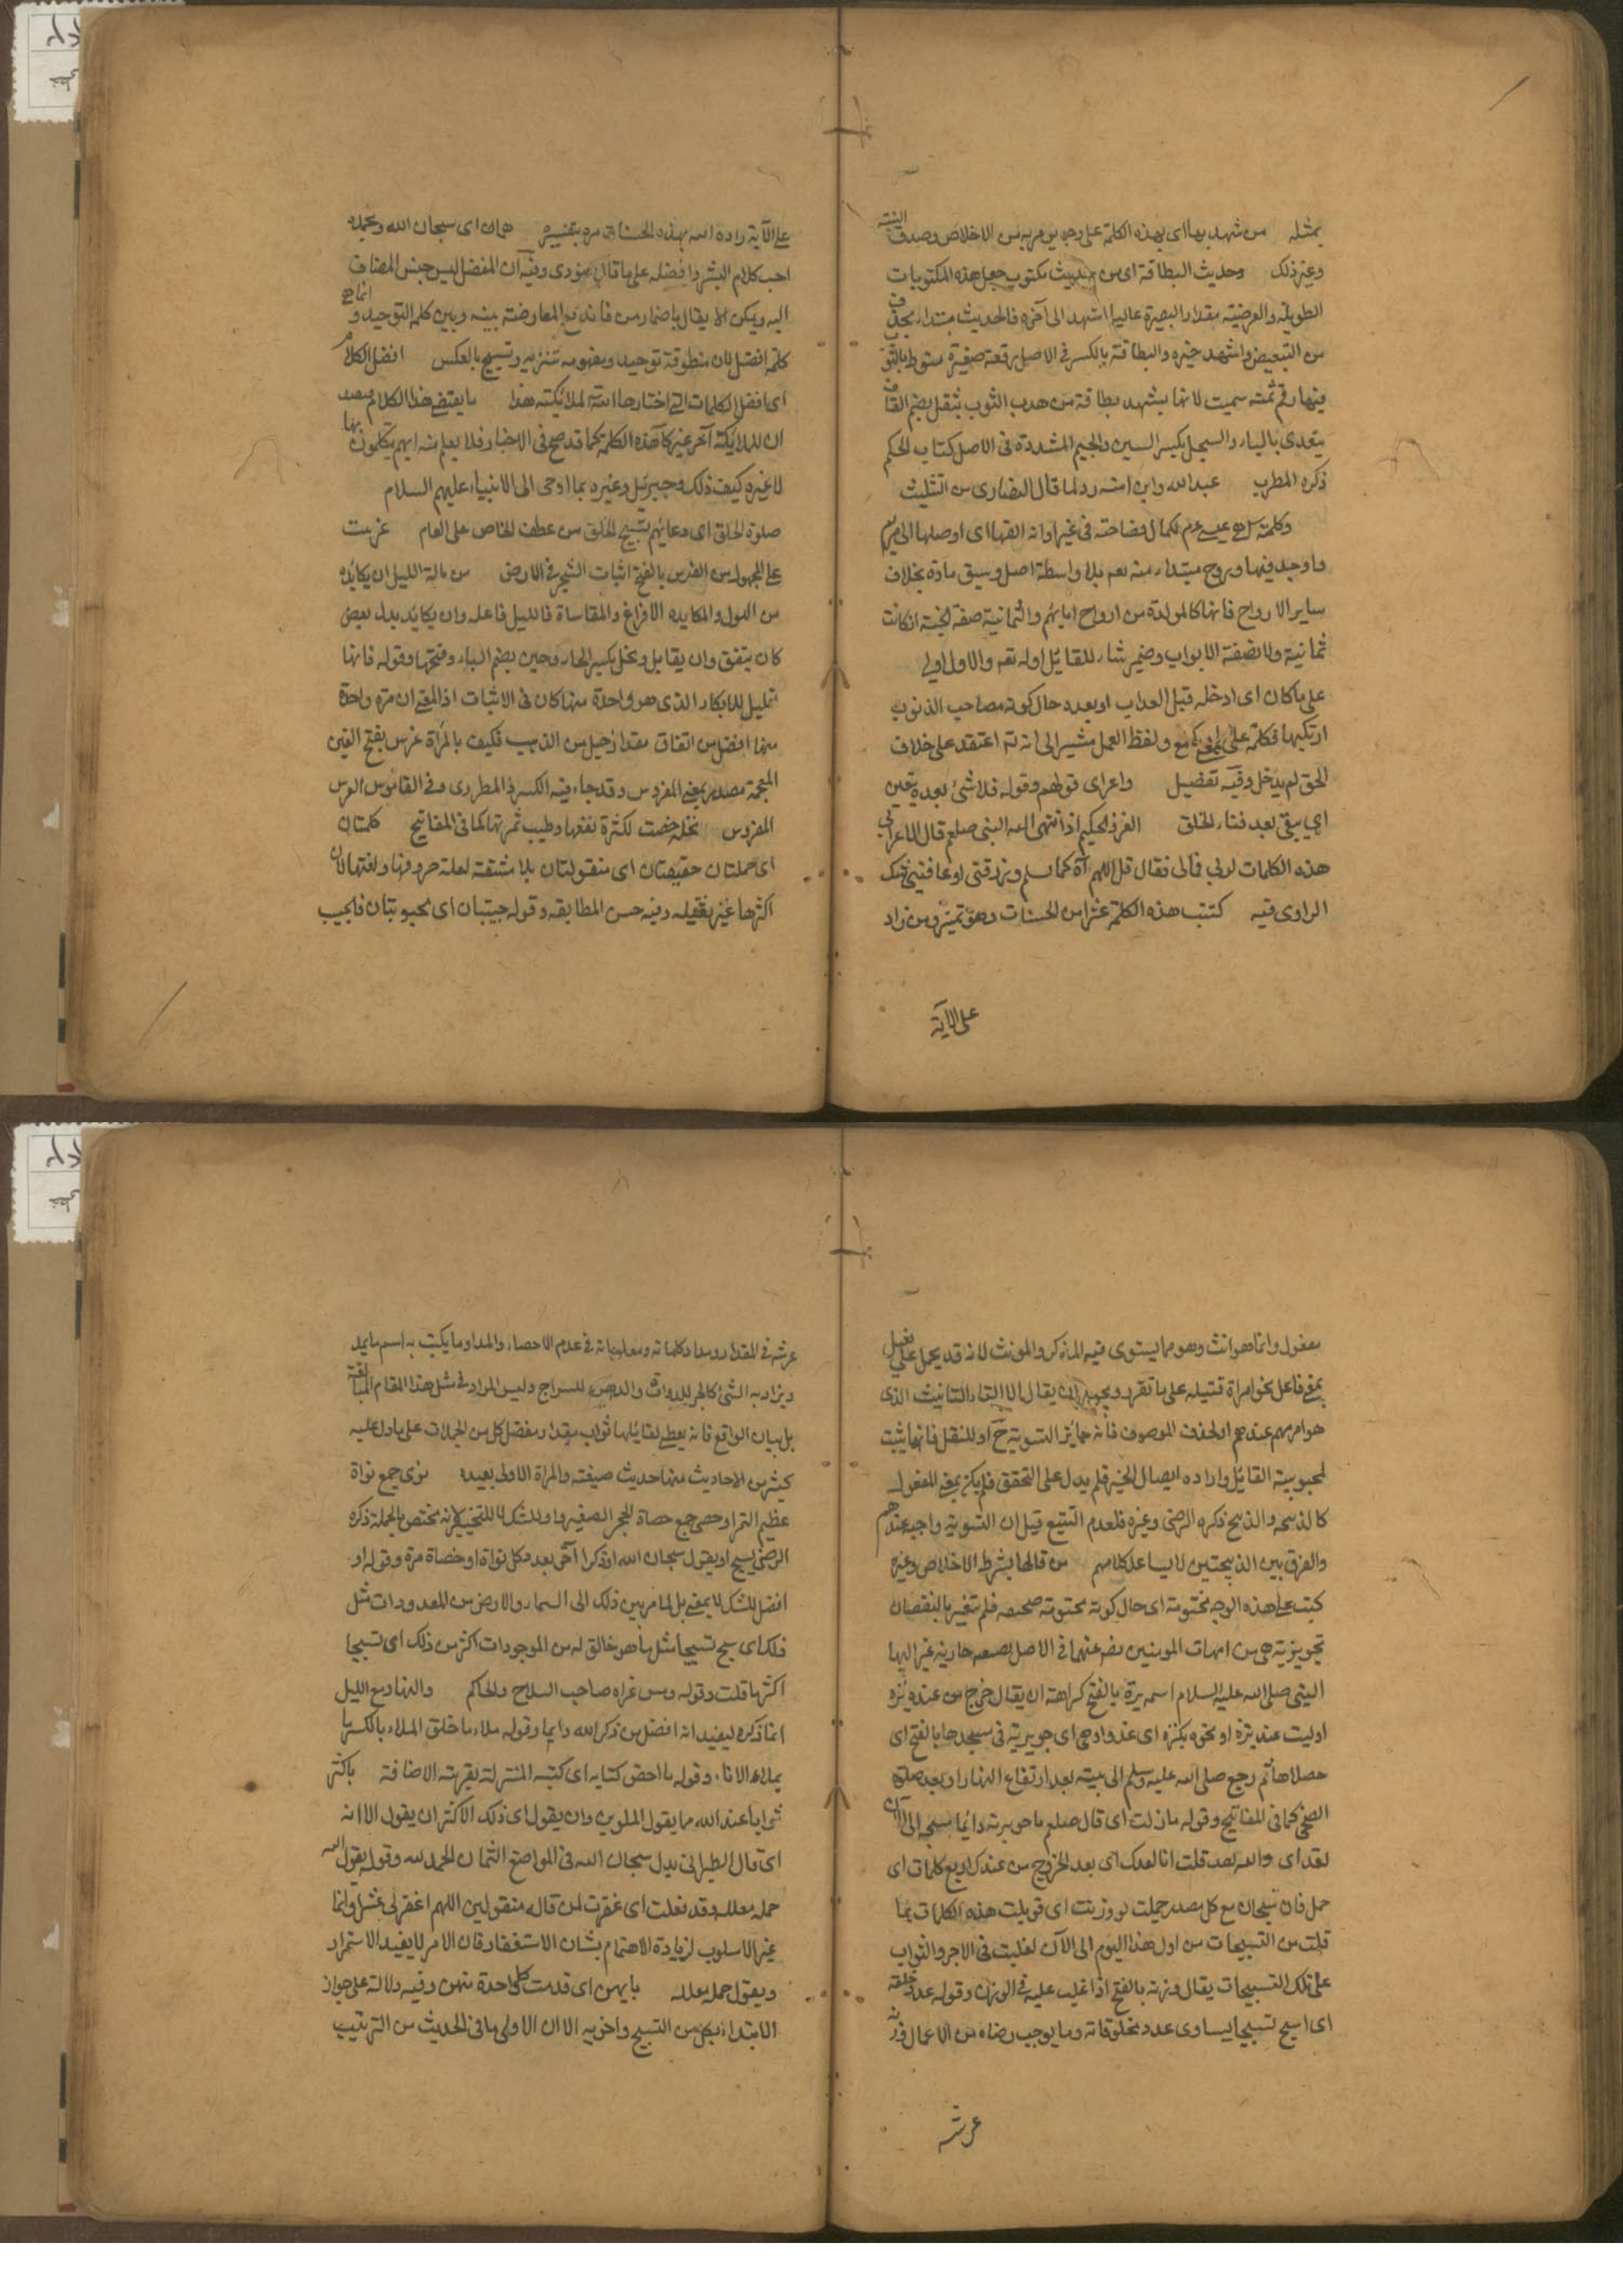 بمثله من شهد بها اى بهذه الكلمة على وجه من الاخلاص وصدق النية
وغير ذلك وحديث البطاقة اى من حديث مكتوب جعل هذه المكتوبات
الطويلة والعريضة مقدار البصيرة عاليا اشهد الى آخره فالحديث مبتداء بحذف
من التبعيض واشهد خبره والبطاقة بالكسر فى الاصل رقعة صغيرة منوط بالثوب
فيها رقم ثمنه سميت لانها بشهد بطاقة من هدب الثوب ثقل بضم القاف
يتعدى بالباء والسجل بكسر السين والجيم المشددة فى الاصل كتاب الحكم
ذكره المطرب عبد الله وابن امته رد لما قال النصارى من التثليث
وكلمته عيسى لكمال فصاحته فى غير اوانه القها اى اوصلها الى مريم
واوجد فيها وروح مبتداء منه بلا واسطة اصل وسبق مادة بخلاف
ساير الارواح فانها كالمولدة من ارواح ابائهم والثمانية صفة الجنة ان كانت
ثمانية ولا نصفة الابواب وضمير شاء للقائل اوله تعه والاول اولى
على ما كان اى ادخله قبل العذاب او بعده حال كونه مصاحب الذنوب
ارتكبها فكلمة على بمعنى مع ولفظ العمل مشير الى انه اعتقد على خلاف
الحق لم يدخل وفيه تفصيل واعراى قولهم وقوله فلا شئ بعده يعين
اى يبقى بعد فناء الخلق العزيز الحكيم اذا انتهى النبى صلعم قال الاعرابى
هذه الكلمات لربى فمالى فقال قل اللهم آه كما سلم وارزقنى او عافنى شك
الراوى فيه كتبت هذه الكلمة عشرا من الحسنات وهو تميز ومن زاد
على الآية
على الآية زاده الله بهذه الحسنات هما اى سبحان الله وبحمده
احب كلام البشر وافضله على ما قال وفيه ان المفضل ليس جنس المضاف
اليه ويمكن ان يقال باضمار من فاندفع المعارضة بينه وبين كلمة التوحيد و انما هو
كلمة افضل لان منطوقة توحيد ومفهومه تنزيه وتسبيح بالعكس افضل الكلام
اى افضل الكلمات التى اختارها الله لملائكته هذا ما يقتضى هذا الكلام
ان للملائكة آخر غير هذه الكلمة كما قد صح فى الاخبار فلا يعلم منه انهم يتكلمون بها
لا غيره كيف ذلك وجبرئيل وغيره بما اوحى الى الانبياء عليهم السلام
صلوة الخلق اى دعائهم تسبيح الخلق من عطف الخاص على العام غرست
على المجهول من الغرس بالفتح اثبات الشجر فى الارض من هاله الليل ان يكابده
من الهول والمكابده الافراغ والمقاساة فالليل فاعله وان يكابد بدل بعض
كان ينفق وان يقابل وبخل بكسر الخاء وجبن بضم الباء وفتحها وقوله فانها
تعليل للابكار الذى هو واحدة منها كان فى الاثبات اذ المعنى ان مرة واحدة
منها افضل من انفاق مقدار جبل من الذهب فكيف بالمرأة غرس بفتح الغين
المعجمة مصدر بمعنى المغروس وقد جاء فيه الكسر فى المطرزى وفى القاموس الغرس
المغروس نخلة خصت لكثرة نفعها وطيب ثمرتها كما فى المفاتيح كلمتان
اى جملتان خفيفتان اى منقولتان بلا مشقة لعلة حروفها ولغتها لان
اكثرها غير ثقيله وفيه حسن المطابقه وقوله حبيبتان اى محبوبتان فالحبيب
مفعول وانما هو انث وهو مما يستوى فيه المذكر والمونث لانه قد يحمل على فعيل
بمعنى فاعل نحو امراة قتيله على ما تقرر ويجوز ان يقال الا التاء التانيث الذى
هو امر مبهم عندهم او لحذف الموصوف فانه جائز التسوية ح او للنقل فانها يثبت
لمحبوبية القائل وارادة ايصال الخير فلم يدل على التحقق فلم يكن بمعنى المفعول
كالذبيحه والذبح ذكره الرضى وغيره فلعدم التتبع قيل ان التسوية واجب عندهم
والفرق بين الذبيحتين لا يساعد كلامهم من قالها بشرط الاخلاص وغيره
كتبت على هذه الوجه مختومة اى حال كونه مختومة صحيحه فلم تتغير بالنقصان
جويرية هى من امهات المومنين رضى عنهما فى الاصل تصغير جارية غير اليها
النبى صلى الله عليه السلام اسم برة بالفتح كراهة ان يقال خرج من عنده بره
او ليت عند بره او نحوه بكره اى غدوا وهى اى جويرية فى مسجدها بالفتح اى
مصلاها ثم رجع صلى الله عليه وسلم الى بيته بعد ارتفاع النهار او بعد صلوة
الضحى كما فى المفاتيح وقوله ما زلت اى قال صلعم يا جويرية دايما تسبيحه الى الآن
لقد اى والله لقد قلت انا بعدك اى بعد الخروج من عندك اربع كلمات اى
جمل فان سبحان مع كل مصدر جملت لو وزنت اى قوبلت هذه الكلمات بما
قلت من التسبيحات من اول هذا اليوم الى الآن لغلبت فى الاجر والثواب
على تلك التسبيحات يقال وزنه بالفتح اذا غلب عليه فى الوزن وقوله عدد خلقه
اى اسبح تسبيحا يساوى عدد مخلوقاته وما يوجب رضاه من الاعمال وزنة
عرشه
عرشه فى المقدار ومداد كلماته ومعلوماته فى عدم الاحصاء والمداد ما يكتب به اسم ما يمد
ويزاد به الشئ كالحبر للدواة والدهن للسراج وليس المراد فى مثل هذا المقام المبالغة
بل بيان الواقع فانه يعطى لقائلها ثواب مقدار مفضل كل من الجملات على ما دل عليه
كثير من الاحاديث منها حديث صيفه والمراة الاولى بعيده نوى جمع نواة
عظيم التمر او حصى جمع حصاة الحجر الصغير واو للشك لا للتخيير لانه مختص بالجملة ذكره
الرضى يسبح او يقول سبحان الله او ذكرا آخر بعدد كل نواة او حصاة مرة وقوله او
افضل للشك لا بمعنى بل لما مر بين ذلك الى السماء والارض من المعدودات مثل
ذلك اى سبح تسبيحا مثل ما هو خالق له من الموجودات اكثر من ذلك اى تسبيحا
اكثرها قلت وقوله ومن غزاه صاحب السلاح والحاكم والنهار مع الليل
انما ذكره ليفيد انه افضل من ذكر الله دايما وقوله ملاء ما خلق الملاء بالكسر ما
يملاء الاناء وقوله ما احصى كتابه اى كتبه المنزلة بقرينة الاضافة باكثر
ثوابا عند الله مما يقول الملوين وان يقول اى ذلك الاكثر ان يقول الا انه
اى قال الطبرانى بدل سبحان الله فى المواضع الثمان الحمد لله وقوله يقول الله
جملة معلله وقد فعلت اى غفرت لمن قاله منقولين اللهم اغفر لى عشر وانما
غير الاسلوب لزيادة الاهتمام بشان الاستغفار فان الامر لا يفيد الاستمرار
ويقول جملة معلله بايهن اى قدمت كل واحدة منهن وفيه دلالة على جواز
الابتداء بكل من التسبيح واخويه الا ان الاولى ما فى الحديث من الترتيب